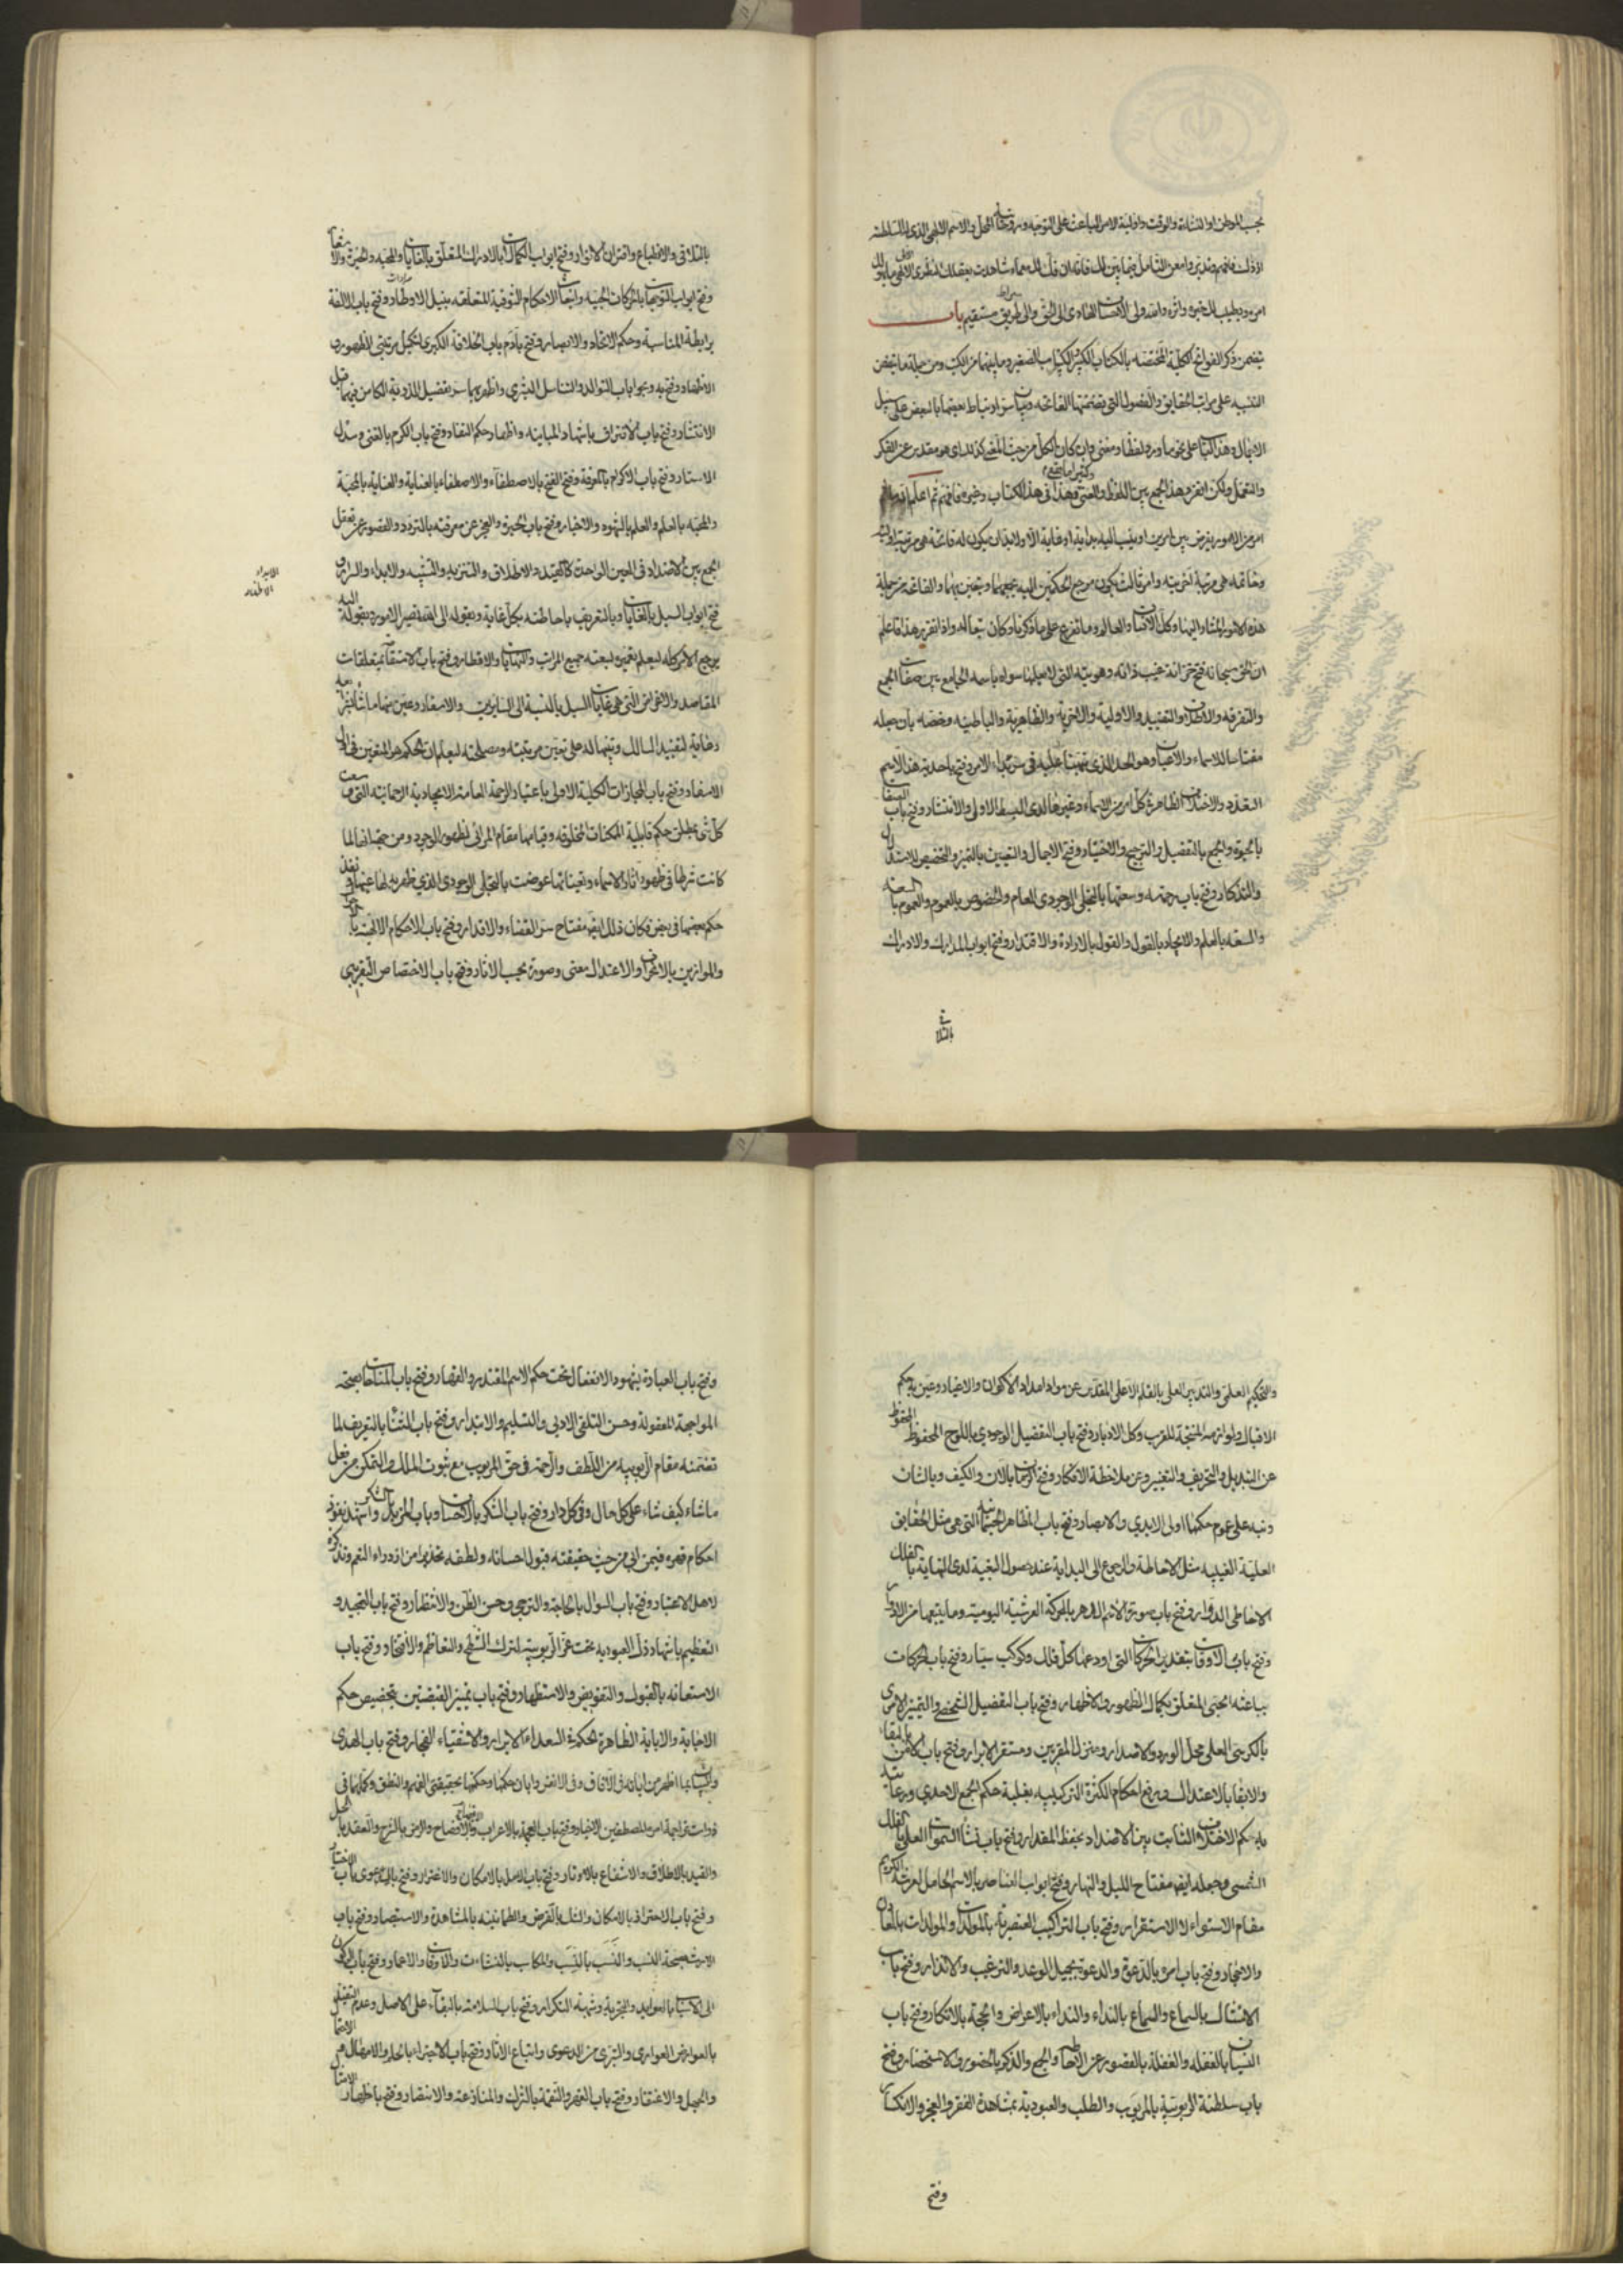 بحسب الموطن او النشاءة والوقت واولية الامر الباعث على التوجه وروحانية المحل والاسم الالهى الذى له السلطنة
اذ ذاك فافهم وتدبر وامعن التأمل فيما بين لك فانه ان فك لك معماه شاهدت بعقلك النظرى الافقى ما يهولك
امره ويطيب لك خبره واثره والله ولى الاحسان الهادى الى الحق والى طريق مستقيم باب
يتضمن ذكر الفواتح الكلية المختصة بالكتاب الكبير والكتاب الصغير وما بينهما من الكتب ومن جملة ما يتضمن
التنبيه على مراتب الحقايق والفصول التى تضمنتها الفاتحه وبيان سر ارتباط بعضها بالبعض على سبيل
الاجمال وهذا الكتاب على نحو ما ورد لفظا ومعنى وان كان الكل من حيث المعنى كذلك اى هو مقدس عن الفكر
والتعمل ولكن انفرد هذا الجمع بين اللفظ والمعنى وكثيرا ما يقع هذا فى هذا الكتاب وغيره فافهم ثم اعلم ان كل
امر من الامور يفرض بين امرين او ينسب اليه بداية او غاية الا ولابد ان يكون له فاتحة هى مرتبة اوليته
وخاتمة هى مرتبة آخريته وامر ثالث يكون مرجع الحكمين اليه يجمعهما ويتعين بهما والفاتحة من جملة
هذه الامور المشار اليها وكذلك الانسان والعالم وما تفرع على ما ذكرنا وكان تبعا له واذا تقرر هذا فاعلم
ان الحق سبحانه فتح خزانة غيب ذاته وهويته التى لا يعلمها سواه باسمه الجامع بين صفات الجمع
والتفرقة والاطلاق والتقييد والاولية والآخرية والظاهرية والباطنية وخصه بان جعله
مفتاحا للاسماء والاعيان وهو الحد الذى نبهت عليه فى سر بدء الامر وفتح باحدية هذا الاسم
التعدد والاختلاف الظاهر فى كل امر من الاسماء وغيرها لدى البسط الاول والانتشار وفتح باب الصفات
بالحيوة والجمع بالتفصيل والترجيح والاختيار وفتح الاجمال والتعيين بالتميز والتخصيص للاستدلال
والتذكار وفتح باب رحمته وسعتها بالتجلى الوجودى العام والخصوص بالعموم والعموم بالسعة
والسعة بالعلم والايجاد بالقول والقول بالارادة والاقتدار وفتح ابواب المدارك والادراك
بالتلاقى
بالتلاقى والانطباع واقتران الانوار وفتح ابواب الكمالات بالادراك المتعلق بالغايات والمحبة والخيرة والاشعار
وفتح ابواب التوجهات بالحركات الحبية وانبعاث الاحكام الشوقية المتعلقة بنيل الاوطار وفتح باب الالفة
برابطة المناسبة وحكم الاتحاد والابصار وفتح بآدم باب الخلافة الكبرى لتكميل مرتبتى الظهور
والاظهار وفتح به وبحوا باب التوالد والتناسل البشرى واظهر بهما سر تفصيل الذرية الكامن فيهما قبل
الانتشار وفتح باب الافتراق باشهاد المباينة واظهار حكم النفار وفتح باب الكرم بالغنى وسدل
الاستار وفتح باب الاكرام بالمعرفة وفتح الفتح بالاصطفاء والاصطفاء بالعناية والعناية بالمحبة
والمحبة بالعلم والعلم بالشهود والاخبار وفتح باب الحيرة والعجز عن معرفته بالتردد والقصور عن تعقل
الجمع بين الاضداد فى العين الواحدة كالتقييد والاطلاق والتنزيه والتشبيه والابدار والسرار و
الابدار
الاظهار
فتح ابواب السبل بالغايات وبالتعريف باحاطته بكل غاية وبقوله الى الله تصير الامور وبقوله اليه
يرجع الامر كله ليعلم تعميره لسعته جميع المراتب والنهايات والاقطار وفتح باب الاستقامة بمتعلقات
المقاصد والاغراض التى هى غايات السبل بالنسبة الى السايرين والاسفار وعين منها ما شاء بشرايعه
رعاية لتقييد السالك وتنبيها له على تعين مرتبته ومصلحته ليعلم ان الحكم هو المتعين فى اول
الاسفار وفتح باب المجازات الكلية الاولى باعتبار الرحمة العامة الايجادية الرحمانية التى وسعت
كل شئ بمطلق حكم قابلية الممكنات المخلوقة وقيامها مقام المرائى لظهور الوجود ومن حيث انها لما
كانت شرطا فى ظهور آثار الاسماء وتعيناتها عوضت بالتجلى الوجودى الذى ظهر به لها عينها ونفذ
حكم بعضها فى بعض فكان ذلك ايضا مفتاح سر القضاء والاقدار وفتح باب الاحكام الالهية بالاحوال
والموازين بالانحراف والاعتدال معنى وصورة بحسب الآثار وفتح باب الاختصاص التقريبى
والتحكيم العلمى والتدبير العلى بالقلم الاعلى المقدس عن مواد امداد الاكوان والاغيار وعين به حكم
الاقبال ولوازمه المنتجة للقرب وكل الادبار وفتح باب التفصيل الوجودى باللوح المحفوظ
عن التبديل والتحريف والتغيير وعن ملاحظة الافكار وفتح الزمان بالآن والكيف وبالشان
ونبه على عموم حكمها اولى الايدى والابصار وفتح باب المظاهر الجسمانية التى هى مثل الحقايق
العلية الغيبية مثل الاحاطة والرجوع الى البداية عند حصول البغية لدى النهاية بالفلك
الاحاطى الدوار وفتح باب صورة الاسم الدهر بالحركة العرشية اليومية وما يتبعها من الادوار
وفتح باب الاوقات بتقدير الحركات التى اودعها كل فلك وكوكب سيار وفتح باب الحركات
بباعثه الحبى المتعلق بكمال الظهور والاظهار وفتح باب التفصيل الشخصى والتميز الامرى
بالكرسى العلى محل الورد والاصدار ومنزل المقربين ومستقر الابرار وفتح باب الامن
والابقاء بالاعتدال ورفع احكام الكثرة التركيبية بغلبة حكم الجمع الاحدى ورعاية
حكم الاختلاف الثابت بين الاضداد بحفظ المقدار وفتح باب نشأة السموات العلى بالفلك
الشمسى وجعله ايضا مفتاح الليل والنهار وفتح ابواب العناصر بالاسم الحامل لعرشه الكريم
مقام الاستواء لا الاستقرار وفتح باب التراكيب العنصرية بالمولدات والمولدات بالمعادن
والاحجار وفتح باب امره بالدعوة والدعوة بجميل الوعد والترغيب والانذار وفتح باب
الامتثال بالسماع والسماع بالنداء والنداء بالاعراض والحجة بالانكار وفتح باب
النسيان بالغفلة والغفلة بالقصور عن الاحاطة والجمع والذكر بالحضور والاستحضار وفتح
باب سلطنة الربوبية بالمربوب والطلب والعبودية بمشاهدة الفقر والعجز والانكسار
وفتح
وفتح باب العبادة بشهود الانفعال تحت حكم الاسم المقتدر والقهار وفتح باب المناجاة بصحة
المواجهة المعقولة وحسن التلقى الادبى والتسليم والابتدار وفتح باب الثناء بالتعريف لما
تضمنه مقام الربوبية من اللطف والرحمة فى حق المربوب مع ثبوت الملك والتمكن من فعل
ما شاء كيف شاء على كل حال وفى كل دار وفتح باب الشكر بالاحسان وباب المزيد بالشكر واشهد نفوذ
احكام قهره فيمن ابى من حيث حقيقته قبول احسانه ولطفه تحذيرا من ازدراء النعم وتذكرة
لاهل الاعتبار وفتح باب السوال بالحاجة والترجى وحسن الظن والانتظار وفتح باب التمجيد و
التعظيم باشهاد ذل العبودية تحت عز الربوبية لترك الشطح والتعاظم والافتخار وفتح باب
الاستعانة بالقبول والتفويض والاستظهار وفتح باب تمييز القبضتين بتخصيص حكم
الاجابة والانابة الظاهرة الحكم فى السعداء الابرار والاشقياء الفجار وفتح باب الهدى
والبيان بما اظهر من آياته فى الآفاق وفى الانفس وابان حكمها وحكمتها بحقيقتى الفهم والنطق وكمالهما فى
ذوات تراجمة امره المصطفين الاخيار وفتح باب العجمة بالاعراب والايضاح والرمز بالشرح والعقد بالحل
والقيد بالاطلاق والاشفاع بالاوتار وفتح باب الامل بالامكان والاغترار وفتح باب الدعوى بالاختبار
وفتح باب الاحتراز بالامكان والشك بالفرض والطمانينة بالمشاهدة والاستبصار وفتح باب
الارث بصحة النسب والنسب بالنسب والمكاسب بالنشاءات والاوقات والاعمار وفتح باب الركون
الى الاسباب بالعوايد والتجربة وشبهة التكرار وفتح باب السلامة بالبقاء على الاصل وعدم التقيد
بالعوارض العوارى والتبرى من الدعوى واتباع الآثار وفتح باب الاجتراء بالحلم والامهال
والجهل والاغتفار وفتح باب القهر والنقمة بالشرك والمنازعة والانتصار وفتح باب